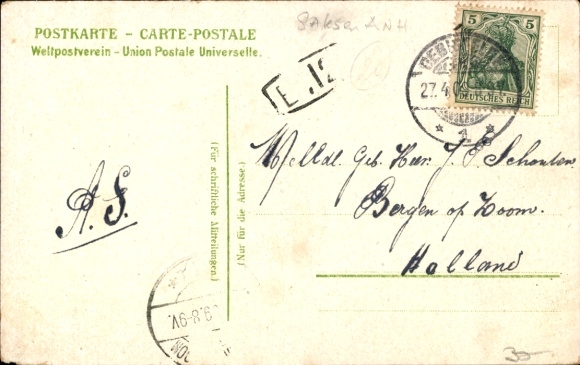 POSTKARTE - CARTE-POSTALE
Weltpostverein - Union Postale Universelle.
5 5
DEUTSCHES REICH
27.4
* 1 *
L.12
(Für schriftliche Mitteilungen.)
(Nur für die Adresse.)
A. S.
Geb. Heer J. P. Schouten
Bergen op Zoom.
Holland
9.8-9V.
35-